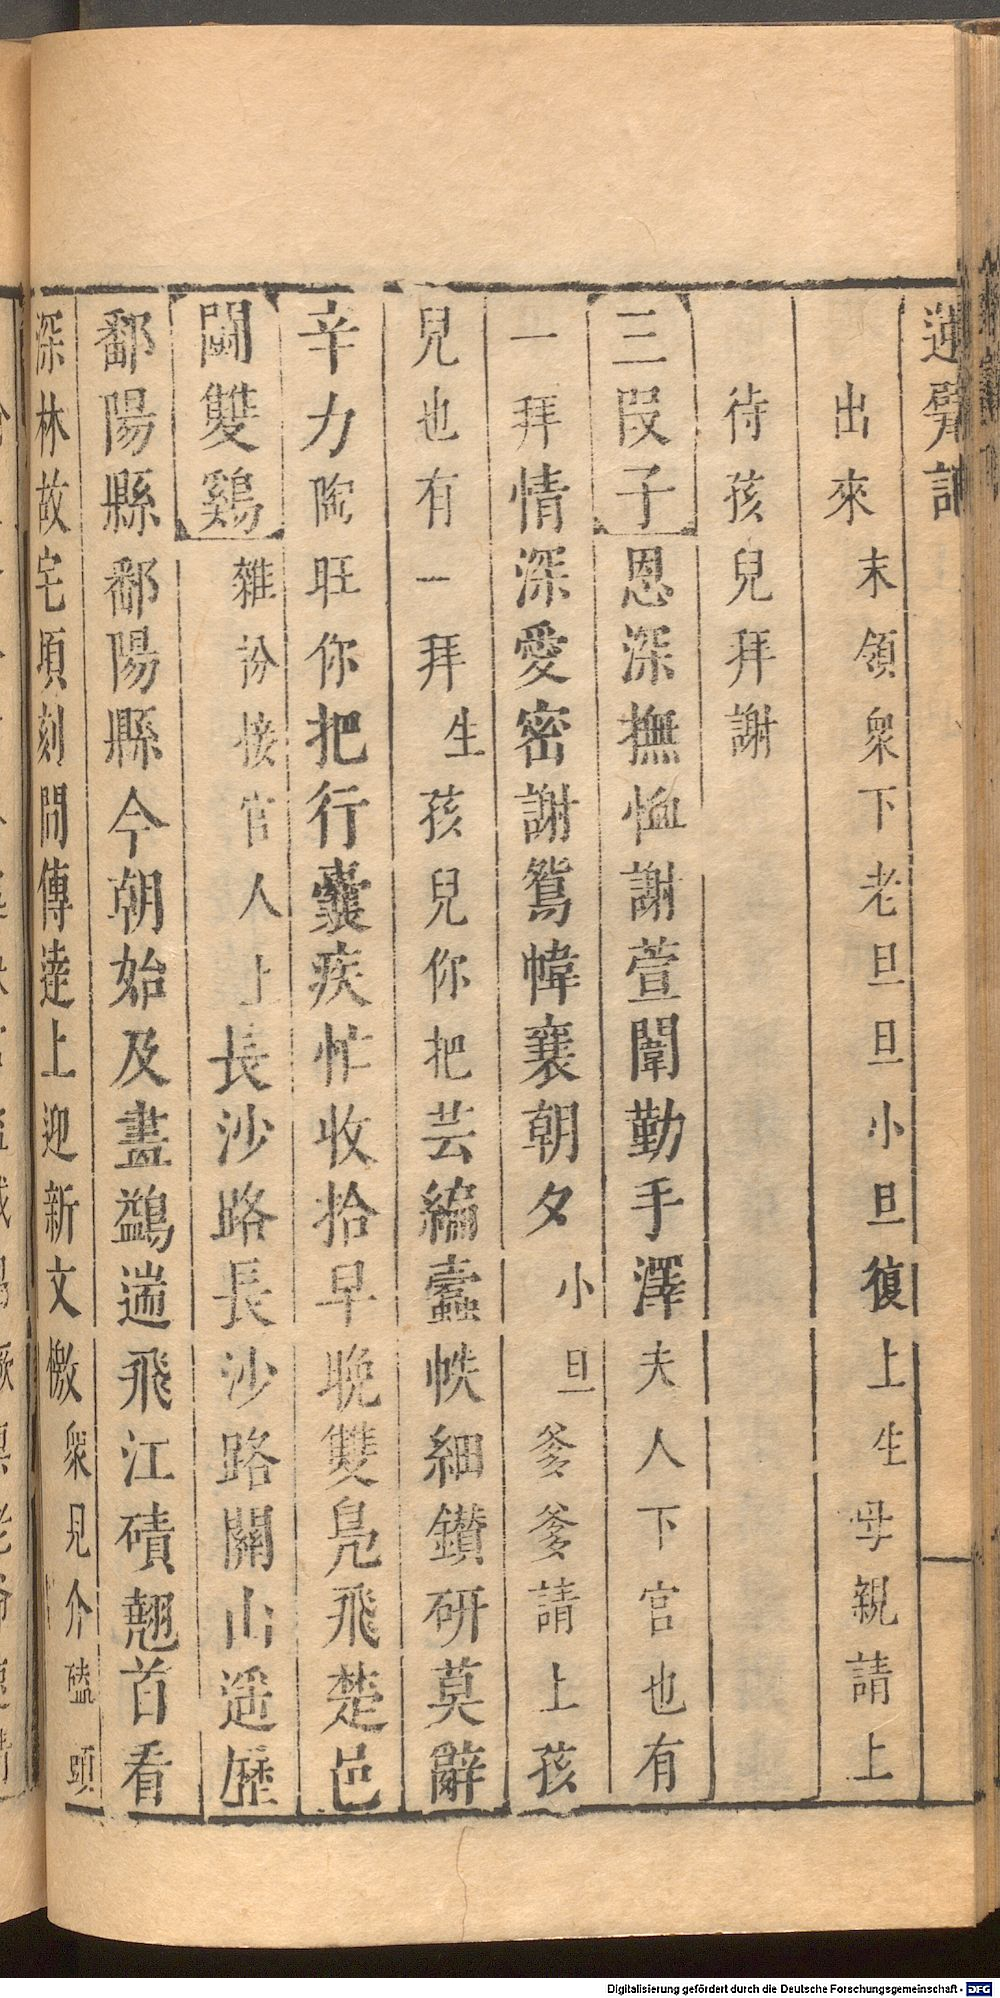 出來末領衆下老旦旦小旦復上生母親請上
待孩兒拜謝
三段子恩深撫恤謝萱闈勤手澤夫人下官也有
一拜情深愛密謝鴛幃襄朝夕小旦爹爹請上孩
兒也有一拜生孩兒你把芸編蠹帙細鑽研莫辭
辛力陶旺你把行囊疾忙收拾早晚雙鳧飛楚邑
鬭雙鷄雜扮接官人上長沙路長沙路關山遥歷
鄱陽縣鄱陽縣今朝始及畫鷁遄飛江磧翹首看
深林故宅頃刻間傳逹上迎新文檄衆見介磕頭
Digitalisierung gefördert durch die Deutsche Forschungsgemeinschaft - DFG